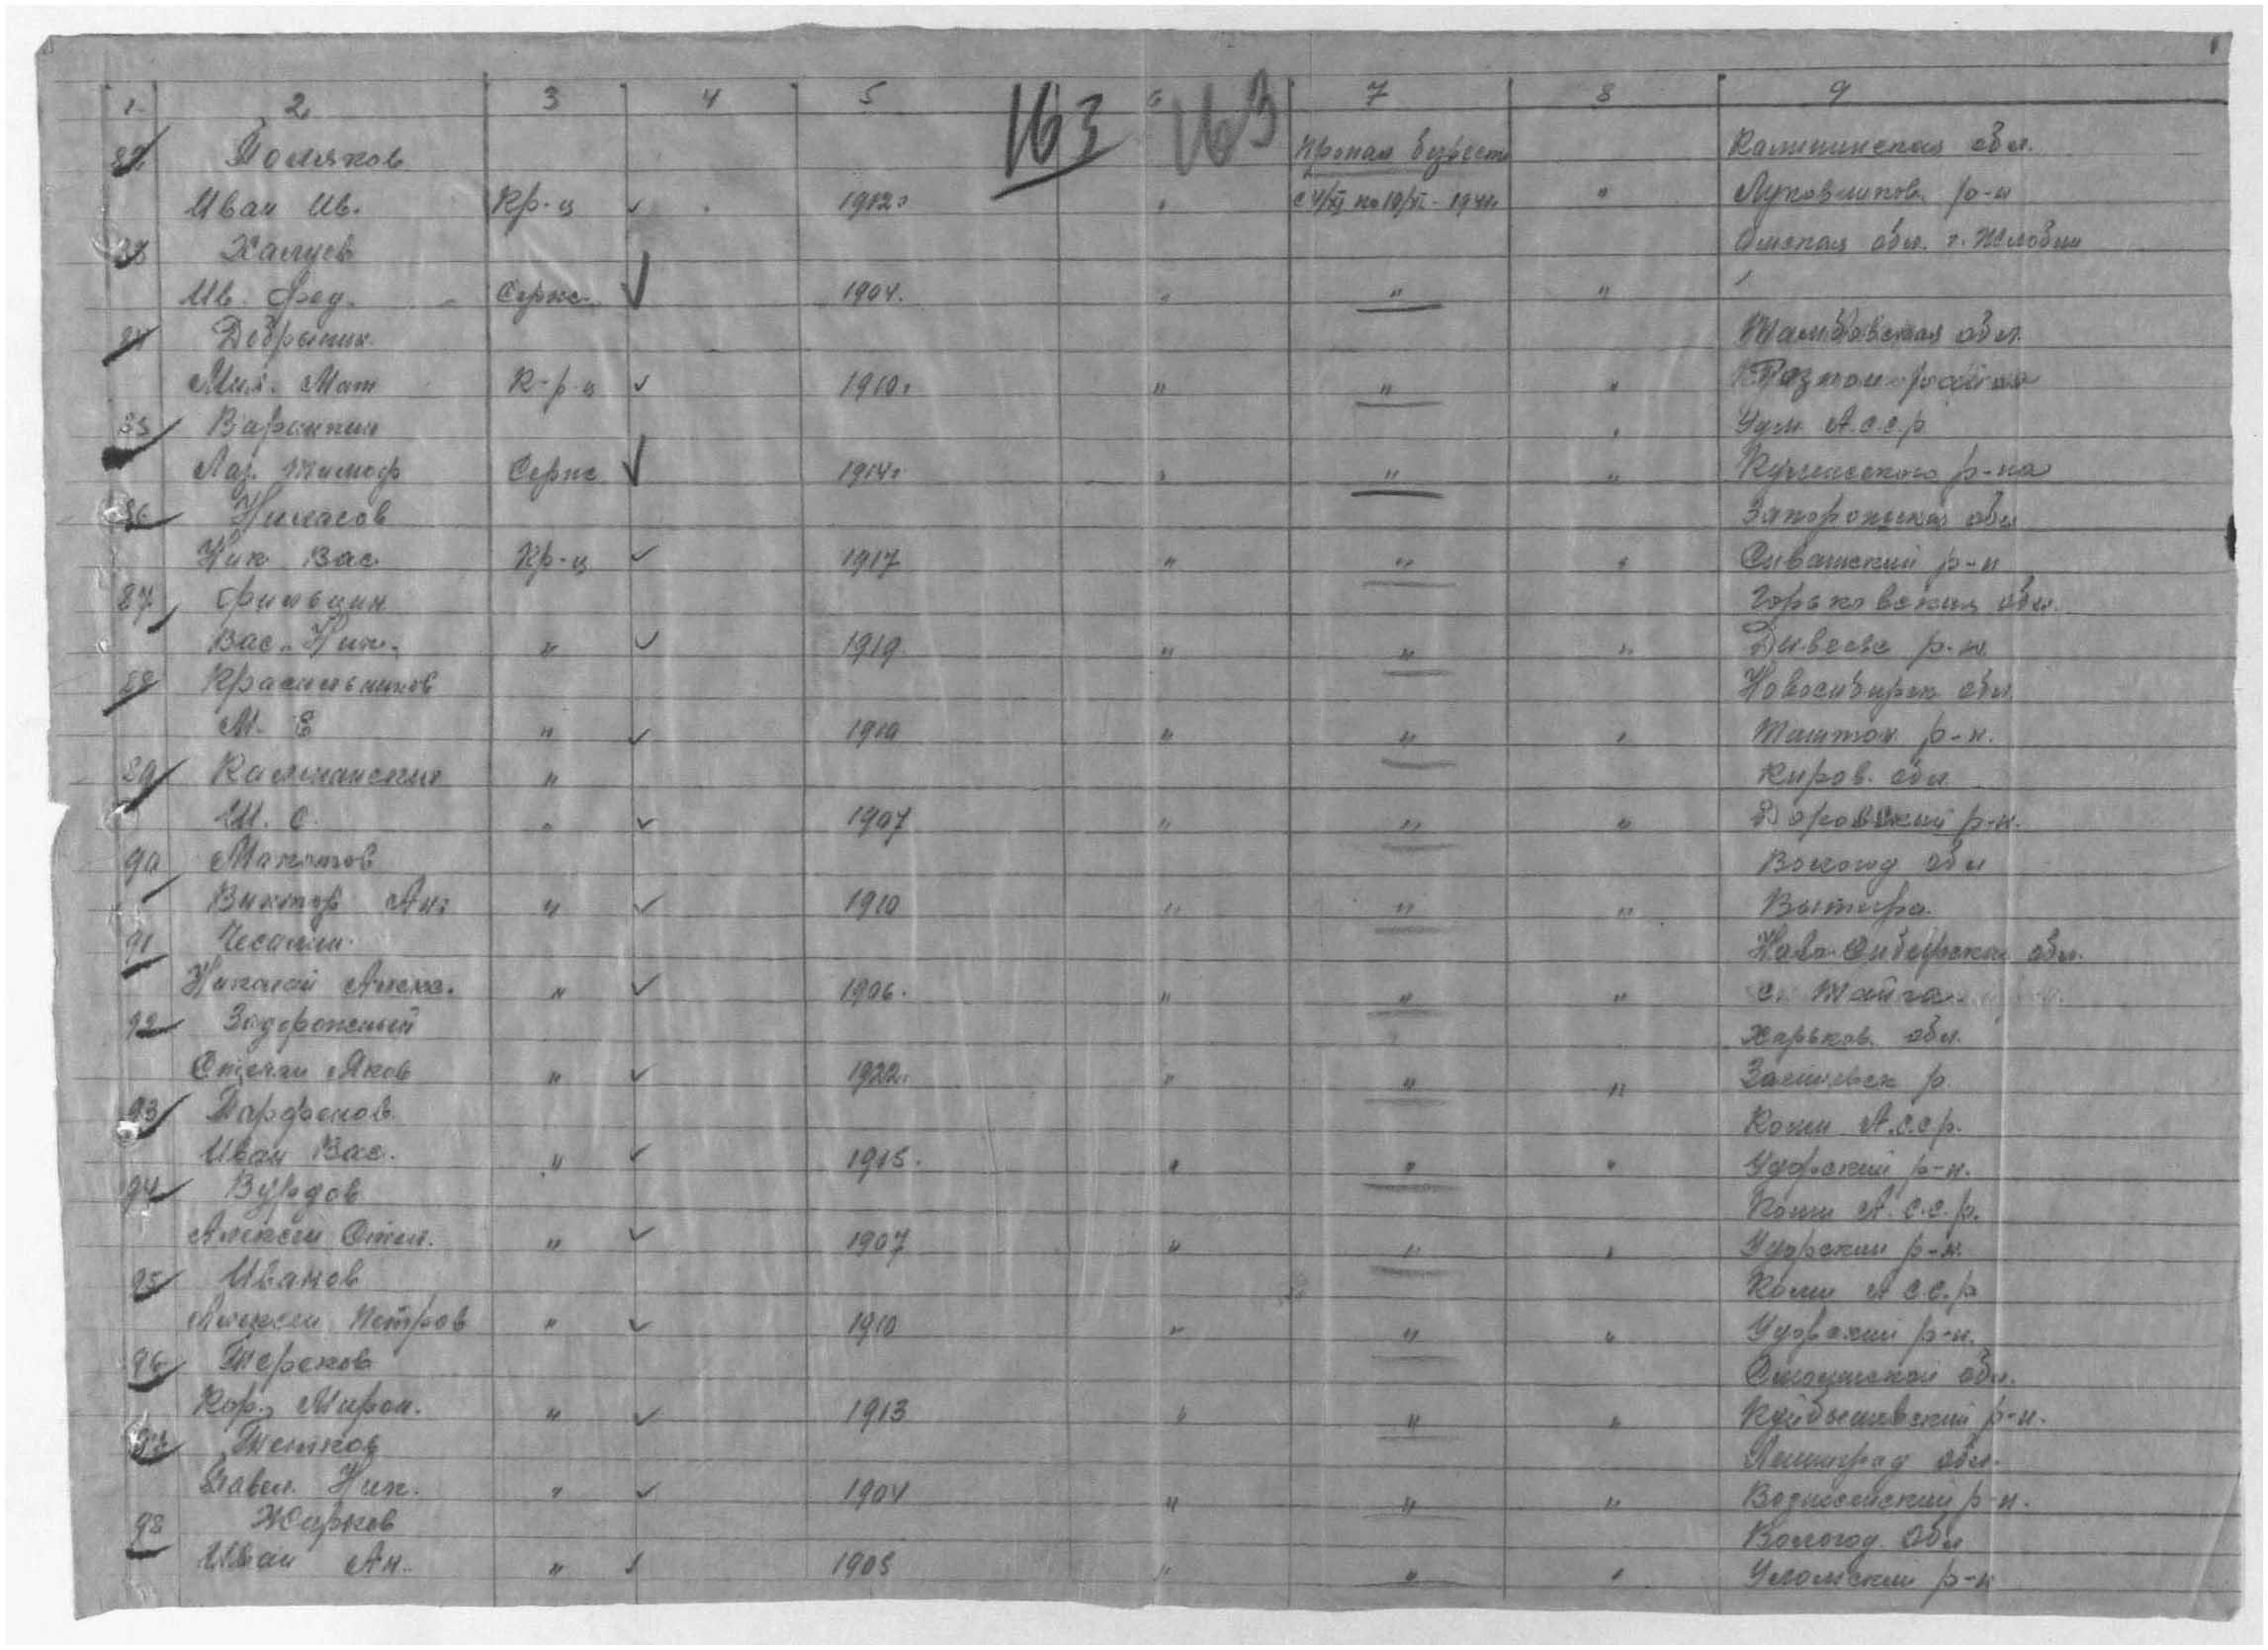 1 2 3 4 5 6 7 8 9
163 163
82 Поляков Пропал безвести Калининская обл.
Иван Ив. Кр-ц 1912г " с 4/XI по 10/XI - 1941г " Луковников. р-н
83 Халуев Омская обл. г. Жлобин
Ив. Фед. Сержс. 1904. " " "
84 Добрынин Тамбовская обл.
Мих. Мат К-р-ц 1910г " " "
85 Варанкин " Удм А.С.С.р
Лаз. Тимоф Сержс 1914г " " " р-на
86 Запорожская обл
Ник Вас. Кр-ц 1917 " " " Сивашский р-н
87 Фильцин Горьковская обл.
Вас. Ник. " 1919 " " " Дивеевс р-н
88 Красильников Новосибирск обл.
М. Е " 1910 " " " Таштог р-н.
89 " Киров. обл.
И. С. " 1907 " " " р-н.
90 Вологод обл
Виктор Ан. " 1910 " " " Вытегра.
91 Чесалин. Ново-Сибирская обл.
Николай Алекс. " 1906. " " " с. Тайга
92 Задорожный Харьков. обл.
Степан Яков " 1922г " " " р
93 Парфенов Коми А.С.С.р.
Иван Вас. " 1915. " " " Удорский р-н.
94 Вурдов Коми А.С.С.р.
Алексей Степ. " 1907 " " " Удорский р-н.
95 Иванов Коми А С.С.р
Алексей Петров " 1910 " " " Удорский р-н.
96 Терехов Смоленской обл.
Кор. Мирон. " 1913 " " " Куйбышевский р-н.
97 Ленинград обл.
Павел. Ник. " 1904 " " " Вознесенский р-н.
98 Жарков Вологод. Обл
Иван Ан. " 1905 " " " Уломский р-н